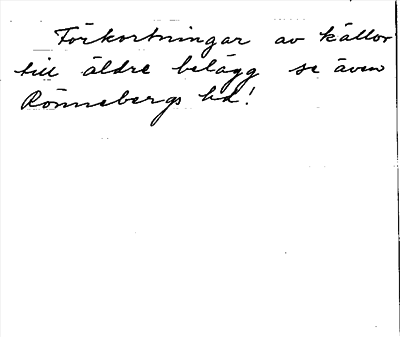 Förkortningar av källor
till äldre belägg se även
Rönnebergs hd!